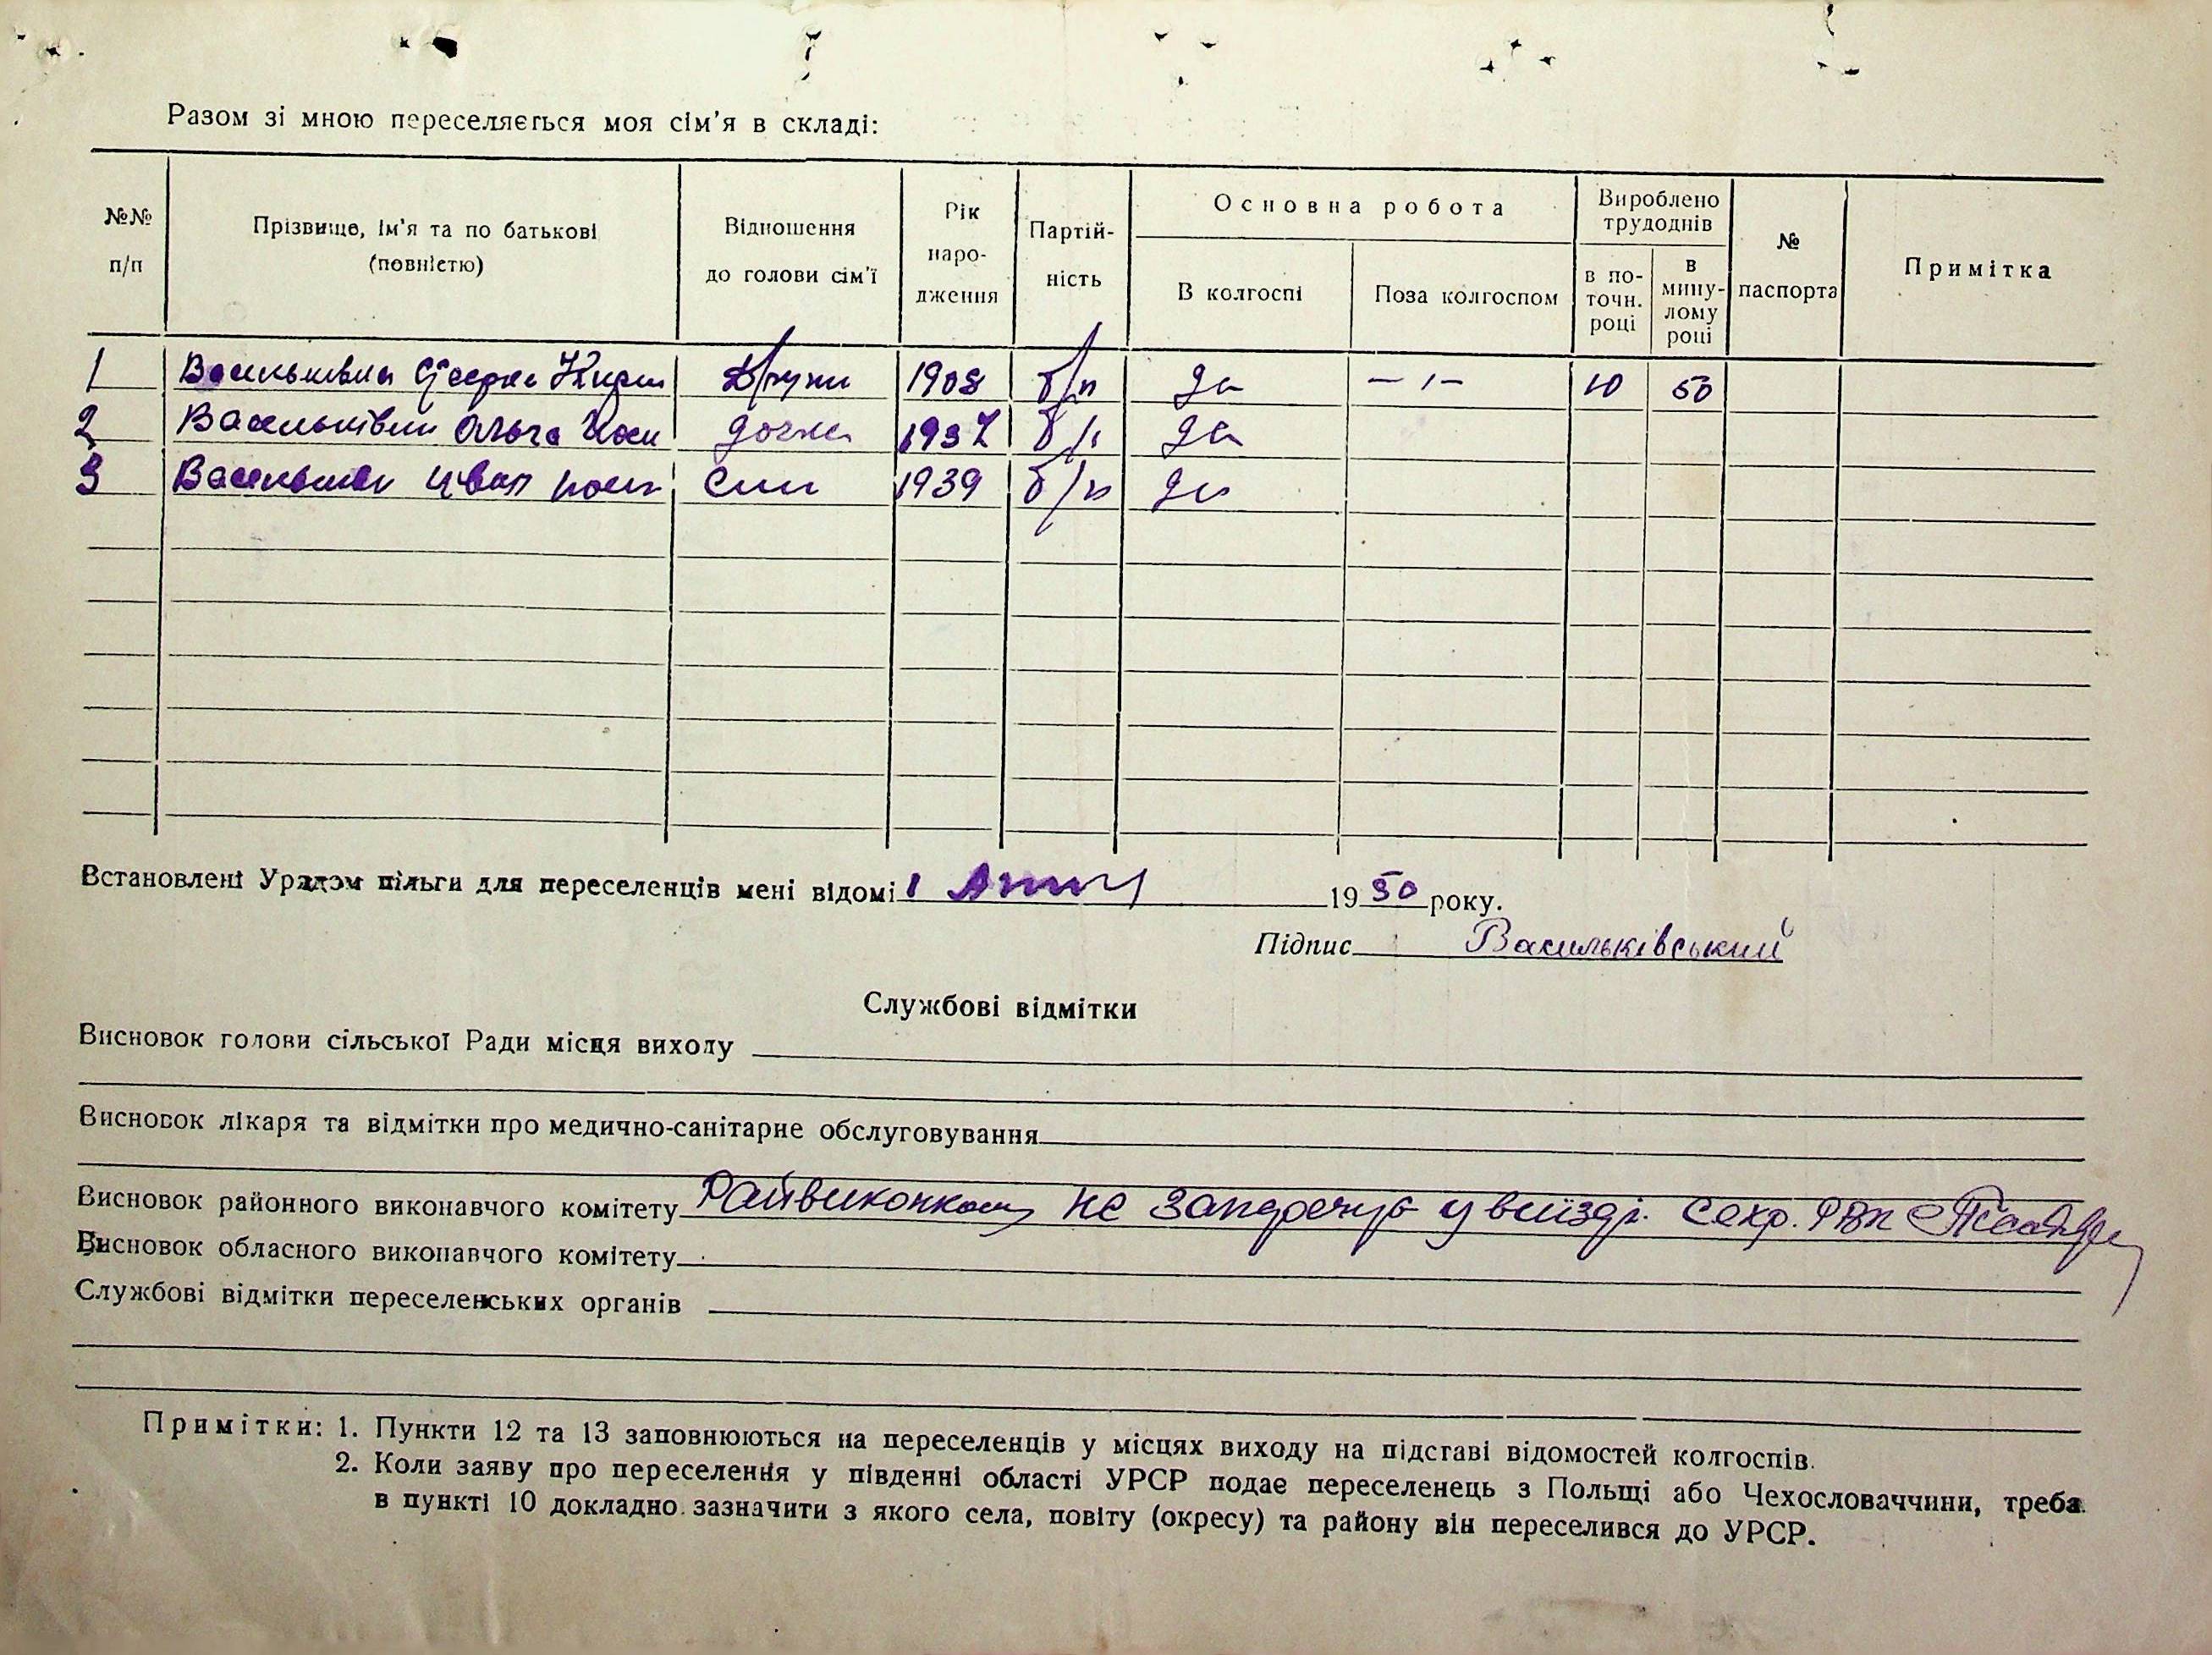 Разом зі мною переселяється моя сім'я в складі:
№№ п/п
Прізвище, ім'я та по батькові (повністю)
Відношення до голови сім'ї
Рік народження
Партійність
Основна робота
В колгоспі
Поза колгоспом
Вироблено трудоднів
в поточн. році
в минулому році
№ паспорта
Примітка
1 1908 б/п да — 1 — 10 50
2 Ольга дочка 1937 б/п да
3 Іван син 1939 б/п да
Встановлені Урядом пільги для переселенців мені відомі 1 1950 року.
Підпис Васильківський
Службові відмітки
Висновок голови сільської Ради місця виходу
Висновок лікаря та відмітки про медично-санітарне обслуговування
Висновок районного виконавчого комітету Райвиконком не заперечує у виїзді. Секр. РВК
Висновок обласного виконавчого комітету
Службові відмітки переселенських органів
Примітки: 1. Пункти 12 та 13 заповнюються на переселенців у місцях виходу на підставі відомостей колгоспів.
2. Коли заяву про переселення у південні області УРСР подає переселенець з Польщі або Чехословаччини, треба
в пункті 10 докладно зазначити з якого села, повіту (окресу) та району він переселився до УРСР.